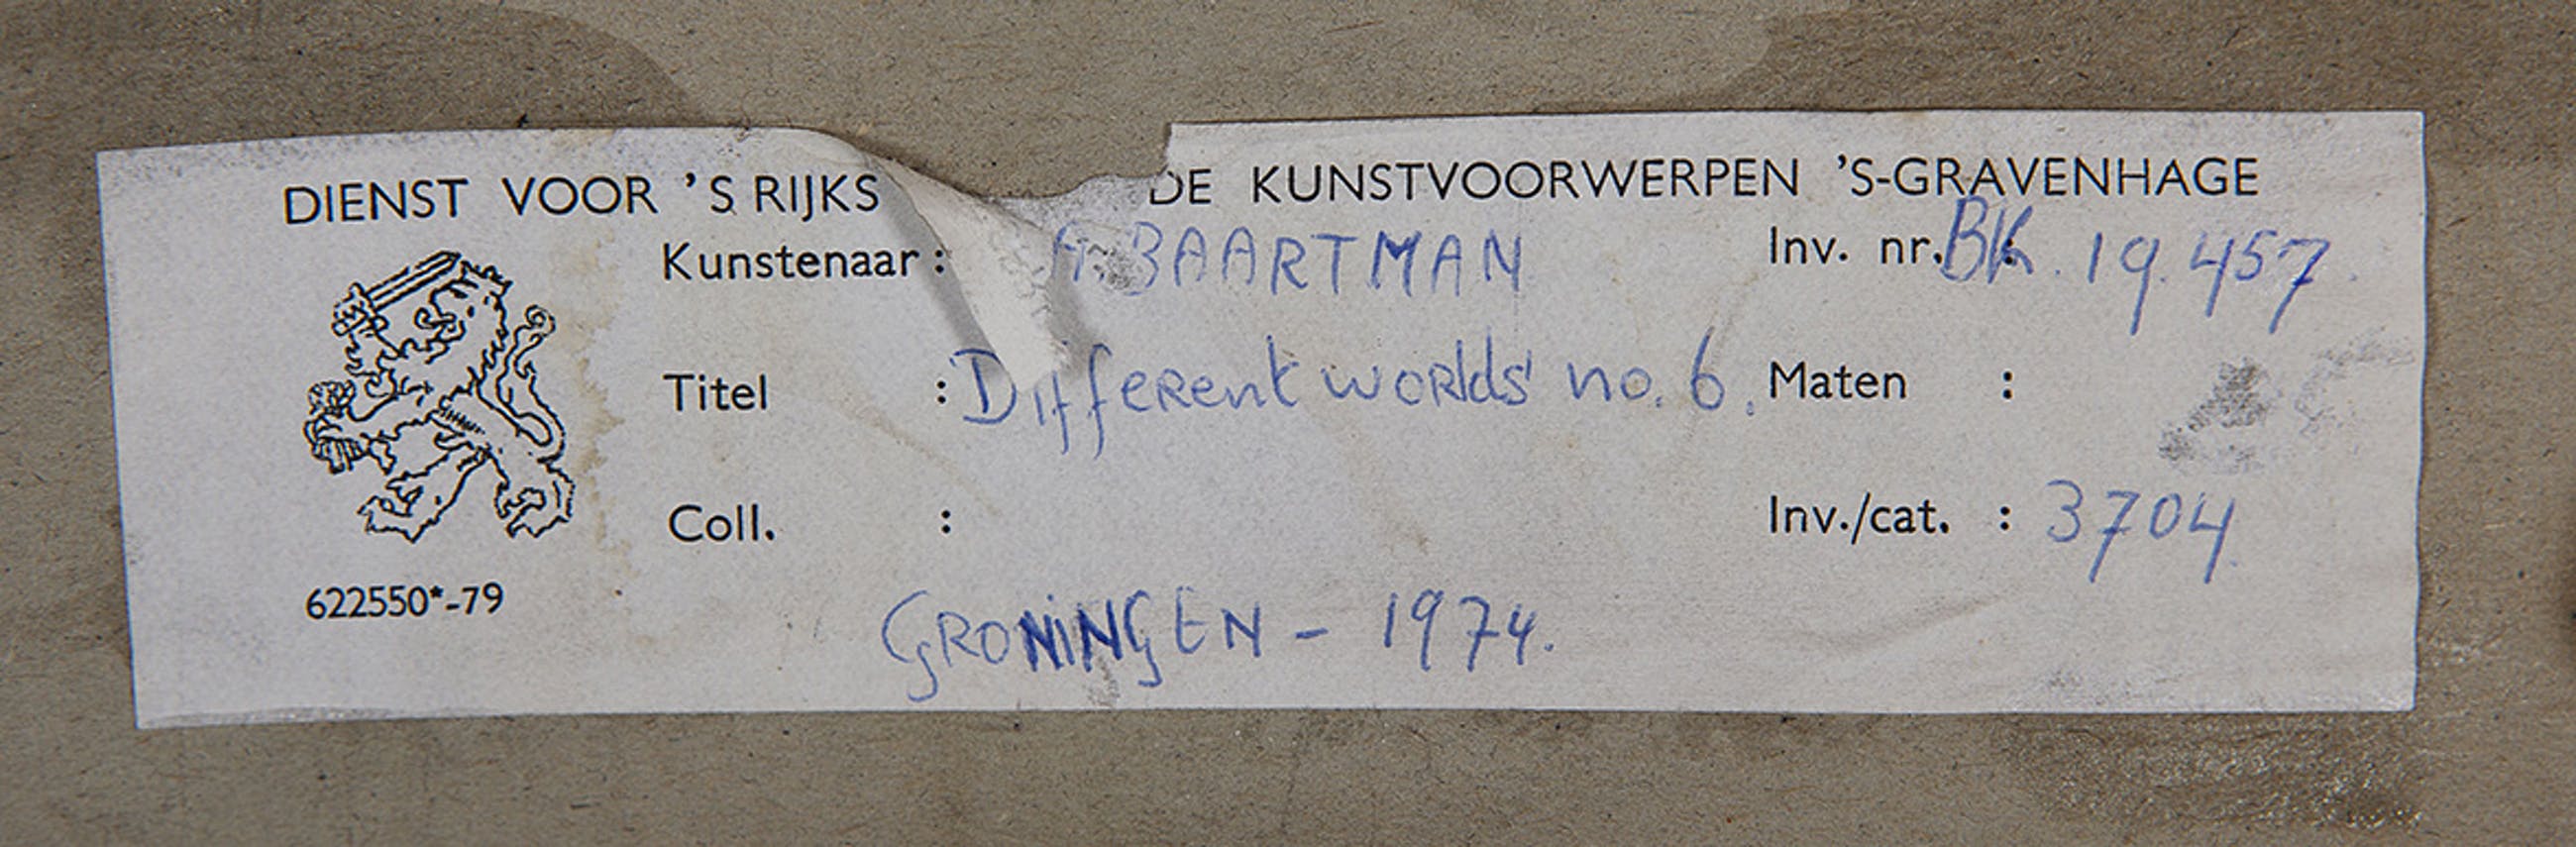 DIENST VOOR 'S RIJKS DE KUNSTVOORWERPEN 'S-GRAVENHAGE
Kunstenaar: BAARTMAN Inv. nr. BK. 19.457.
Titel : Different worlds' no. 6. Maten :
Coll. : Inv./cat. : 3704.
622550*-79
GRONINGEN - 1974.